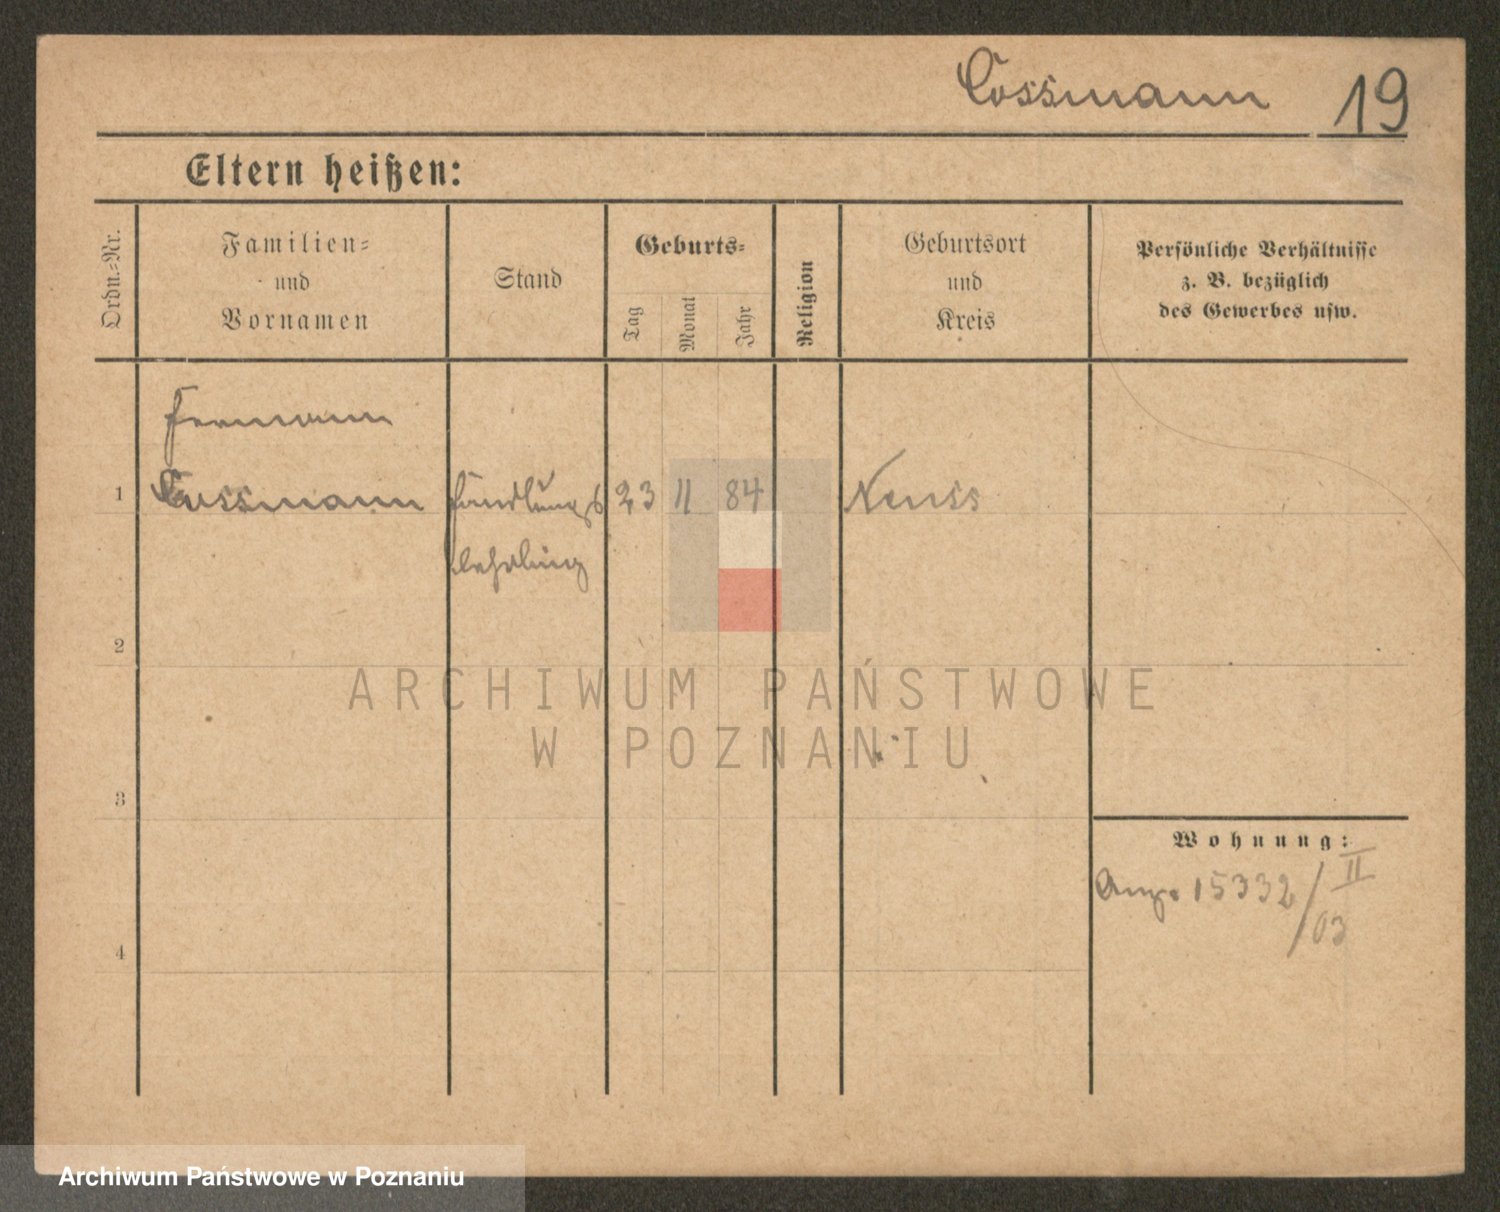 Cossmann 19
Eltern heißen:
Ordn.-Nr.
Familien-
und
Vornamen
Stand
Geburts-
Tag
Monat
Jahr
Religion
Geburtsort
und
Kreis
Persönliche Verhältnisse
z. B. bezüglich
des Gewerbes usw.
Hermann
1 Cossmann Handlungs 23 11 84 Neuss
lehrling
2
ARCHIWUM PAŃSTWOWE
W POZNANIU
3
Wohnung:
15332/II
03
4
Archiwum Państwowe w Poznaniu